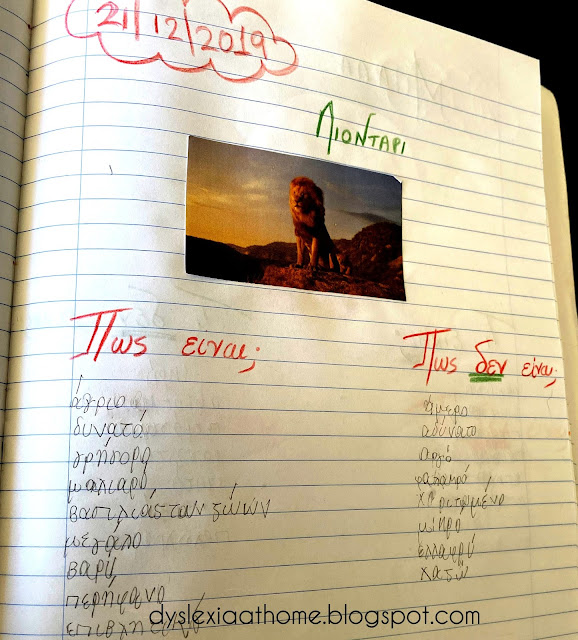 21/12/2019
Λιονταρι
Πως ειναι;
άγριο
δυνατό
γρήγορο
μαλιαρό
βασιλιάς των ζώων
μεγάλο
βαρύ
περήφανο
Πως δεν είναι;
ήμερο
αδύνατο
αργό
φαλακρό
μικρό
ελλαφρύ
dyslexiaathome.blogspot.com